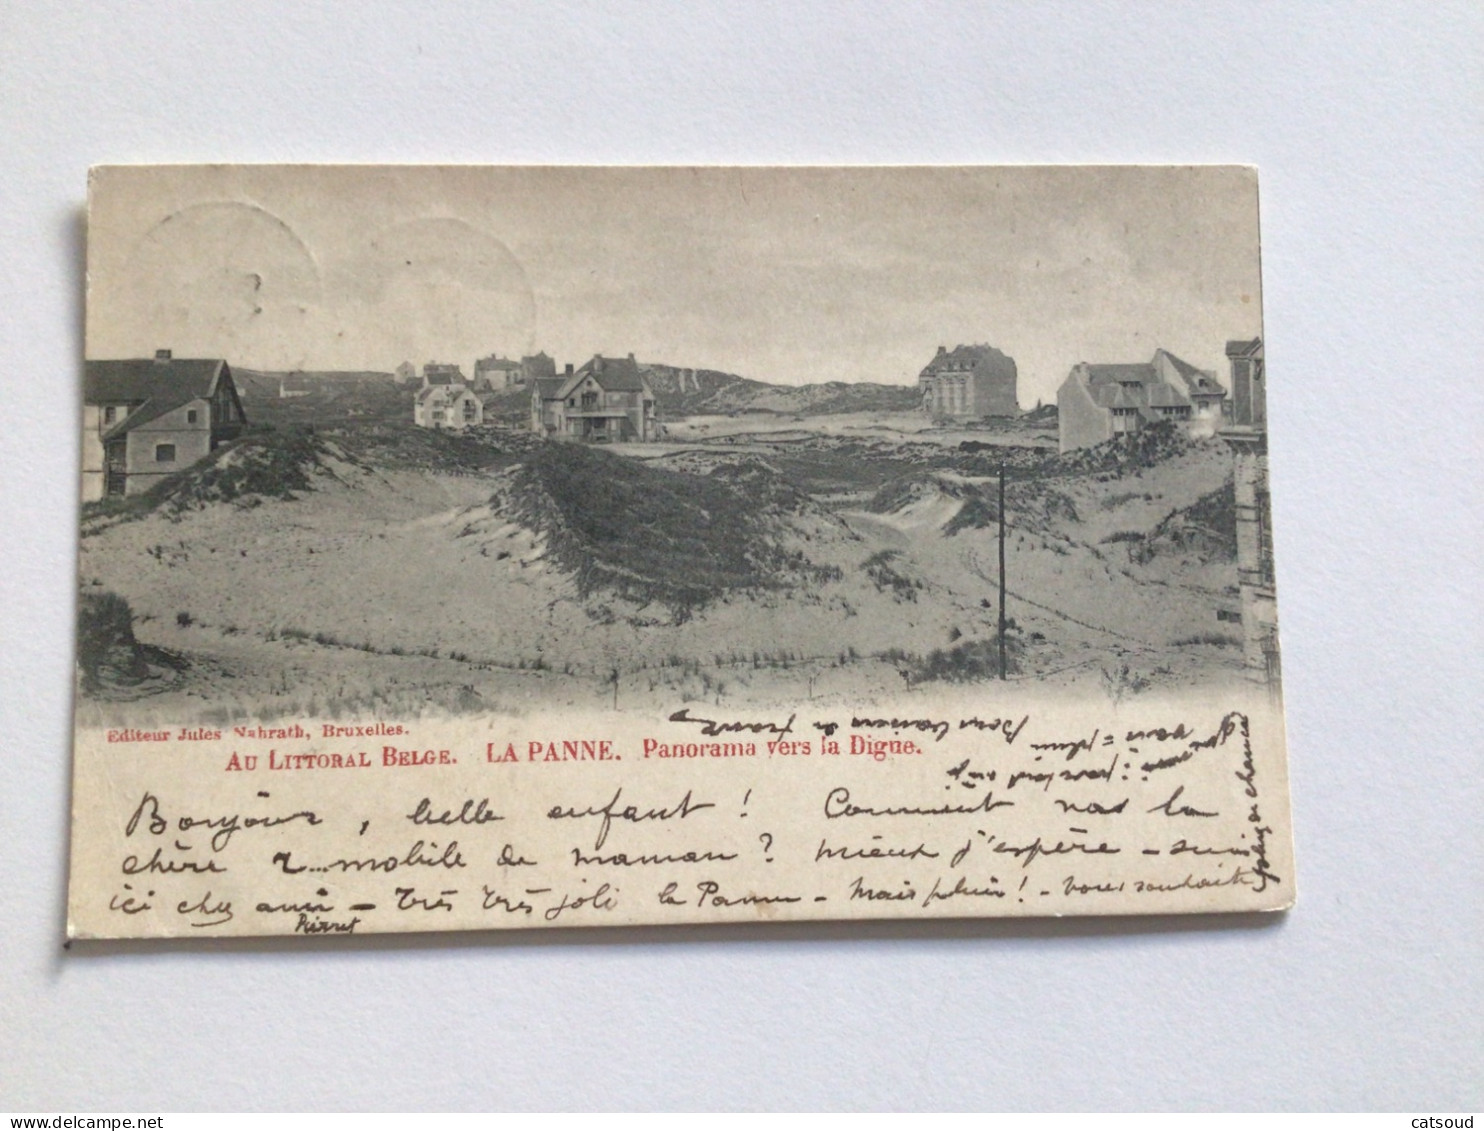 Editeur Jules Nahrath, Bruxelles.
AU LITTORAL BELGE. LA PANNE. Panorama vers la Digue.
Bonjour, belle enfant ! Comment vas la
chère mobile de maman ? Mieux j'espère - suis
ici chez ami - très très joli la Panne - Mais pluie ! - vous souhaite
Pierret
catsoud